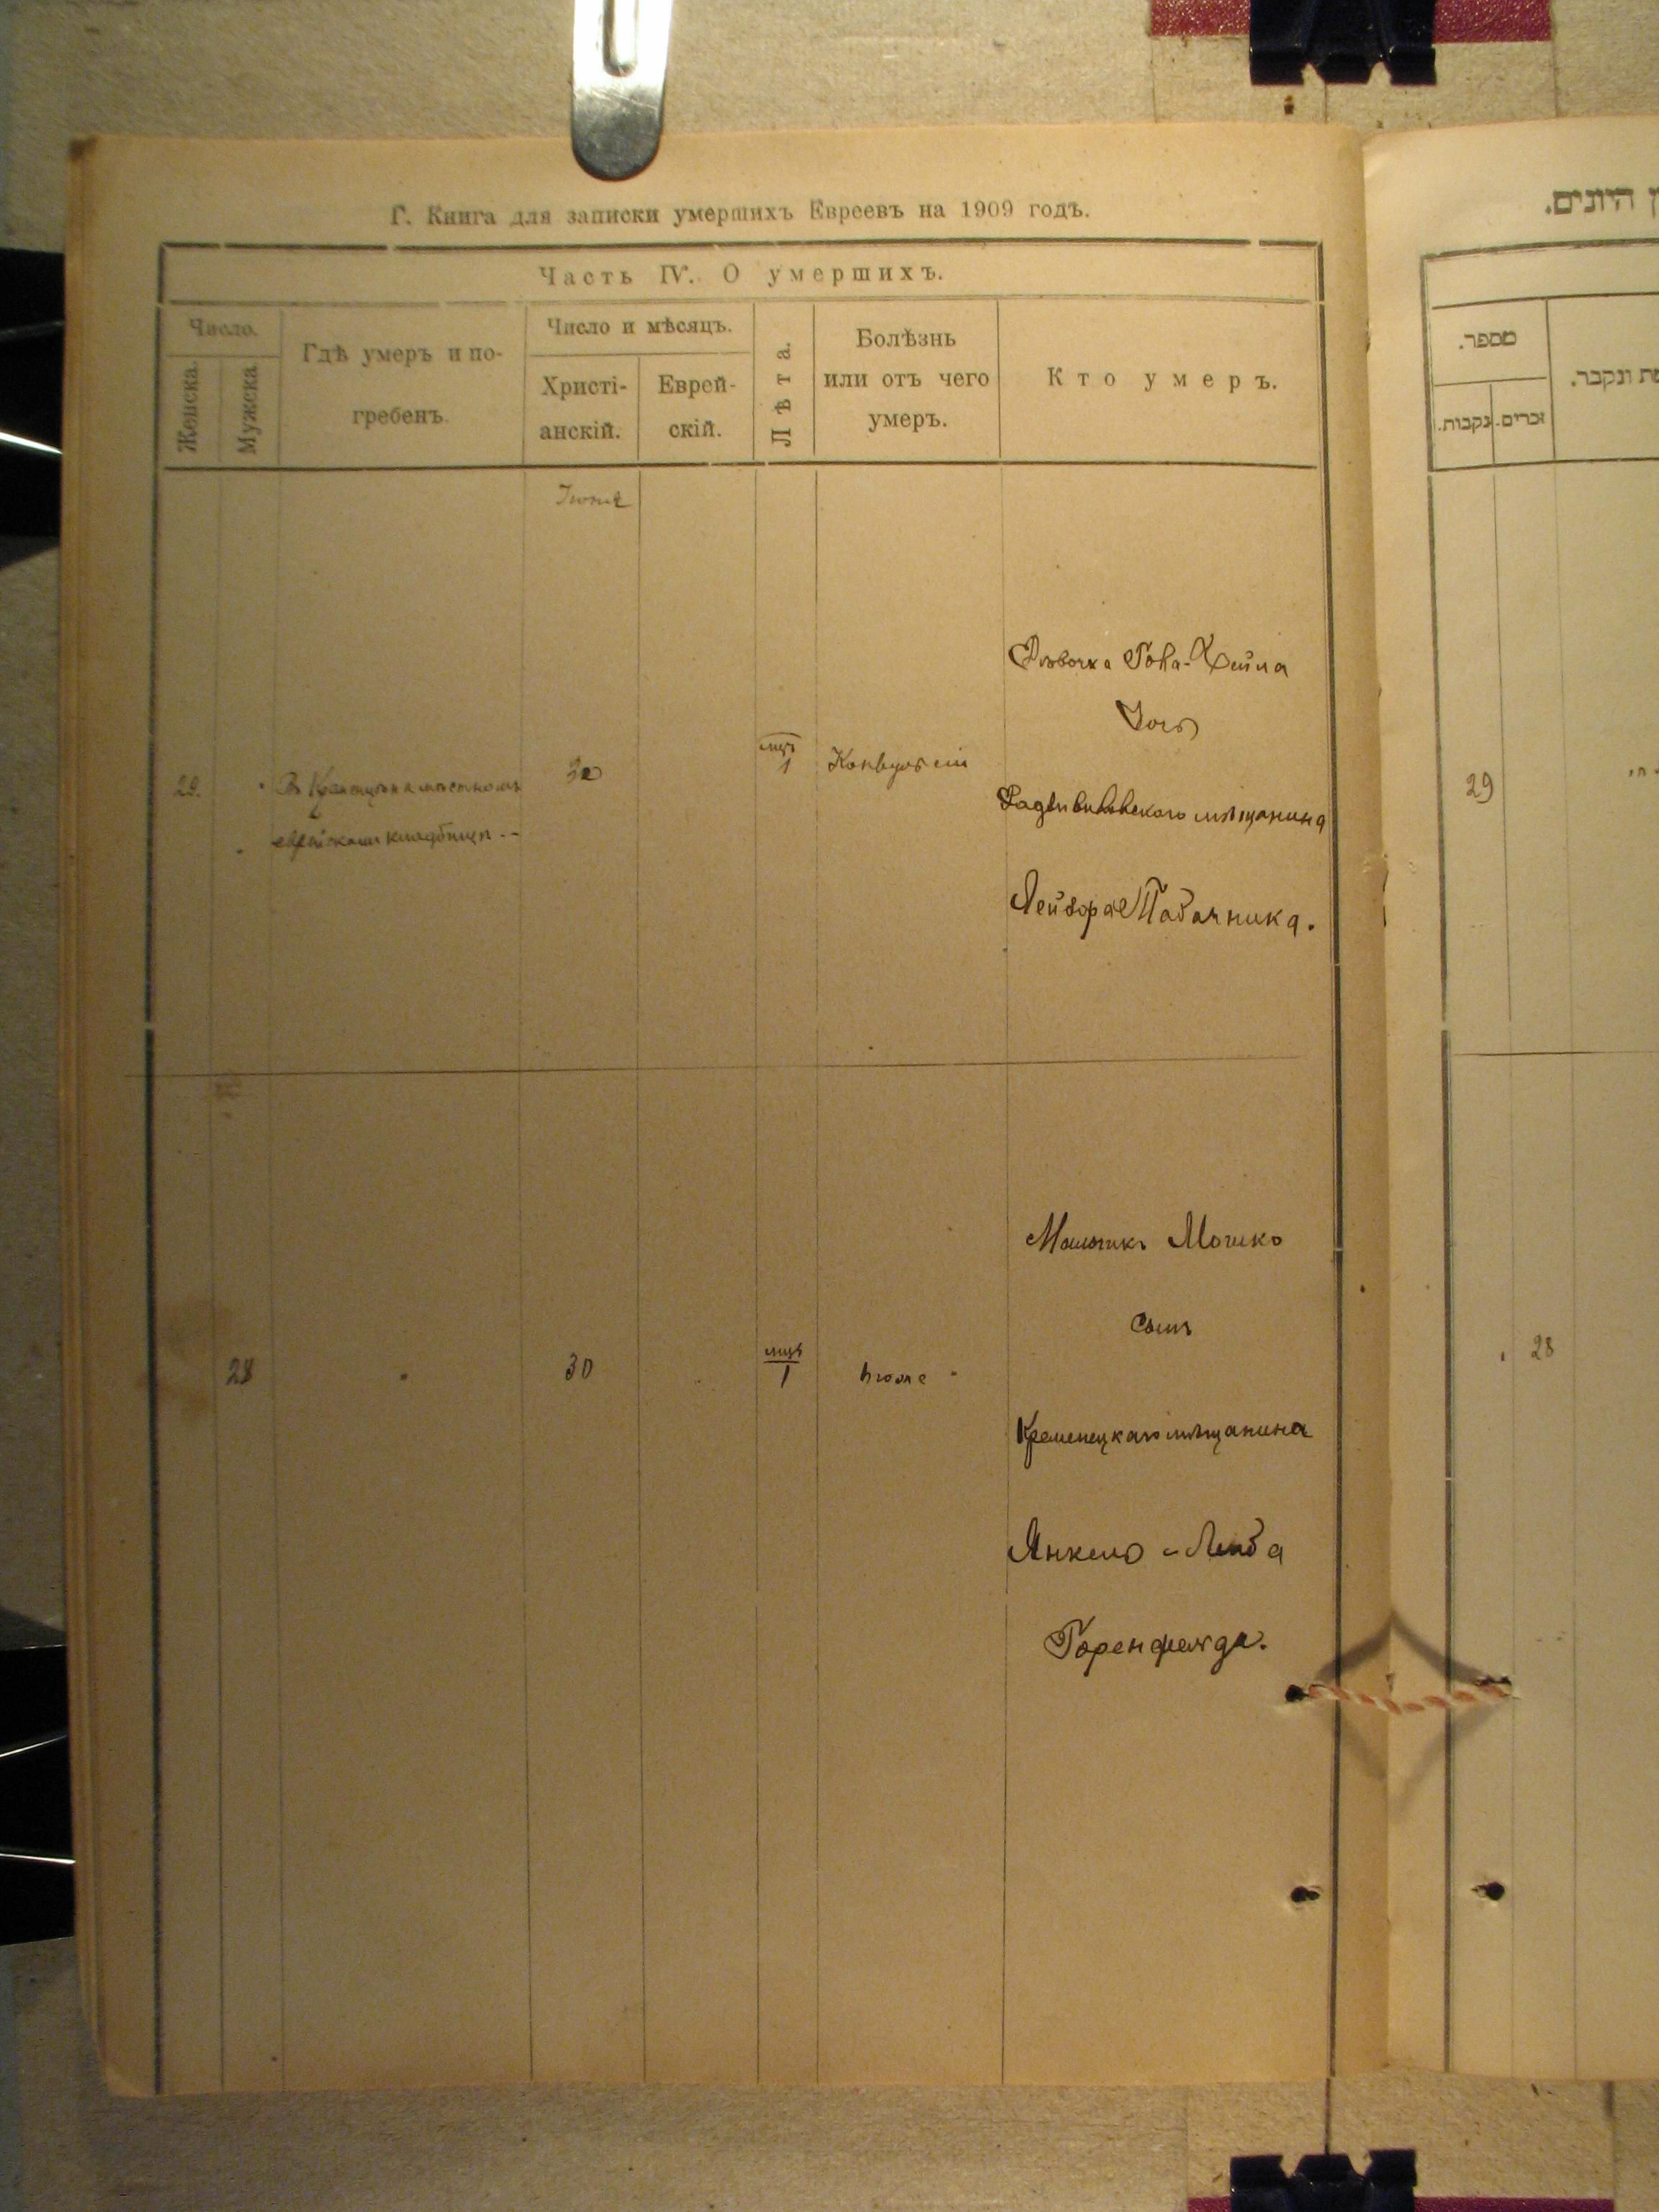 Г. Книга для записки умершихъ Евреевъ на 1909 годъ.
Часть IV. О умершихъ.
Число.
Женска.
Мужска
Гдѣ умеръ и по-
гребенъ.
Число и мѣсяцъ.
Христі-
анскій.
Еврей-
скій.
Лѣта.
Болѣзнь
или отъ чего
умеръ.
Кто умеръ.
Іюня
29.
въ Кременцѣ на мѣстномъ
еврейскомъ кладбищѣ
30
мцъ
1
Конвульсіи
Дѣвочка Хейла
Дочь
Радзивиловского мѣщанина
Лейзора Табачника.
28
30
мцъ
1
тоже
Мальчикъ Мошко
сынъ
Кременецкаго мѣщанина
Янкель-Лейба
Горенфельда.
ן היונים.
מספר.
נקבות.
זכרים.
ת ונקבר.
29
28